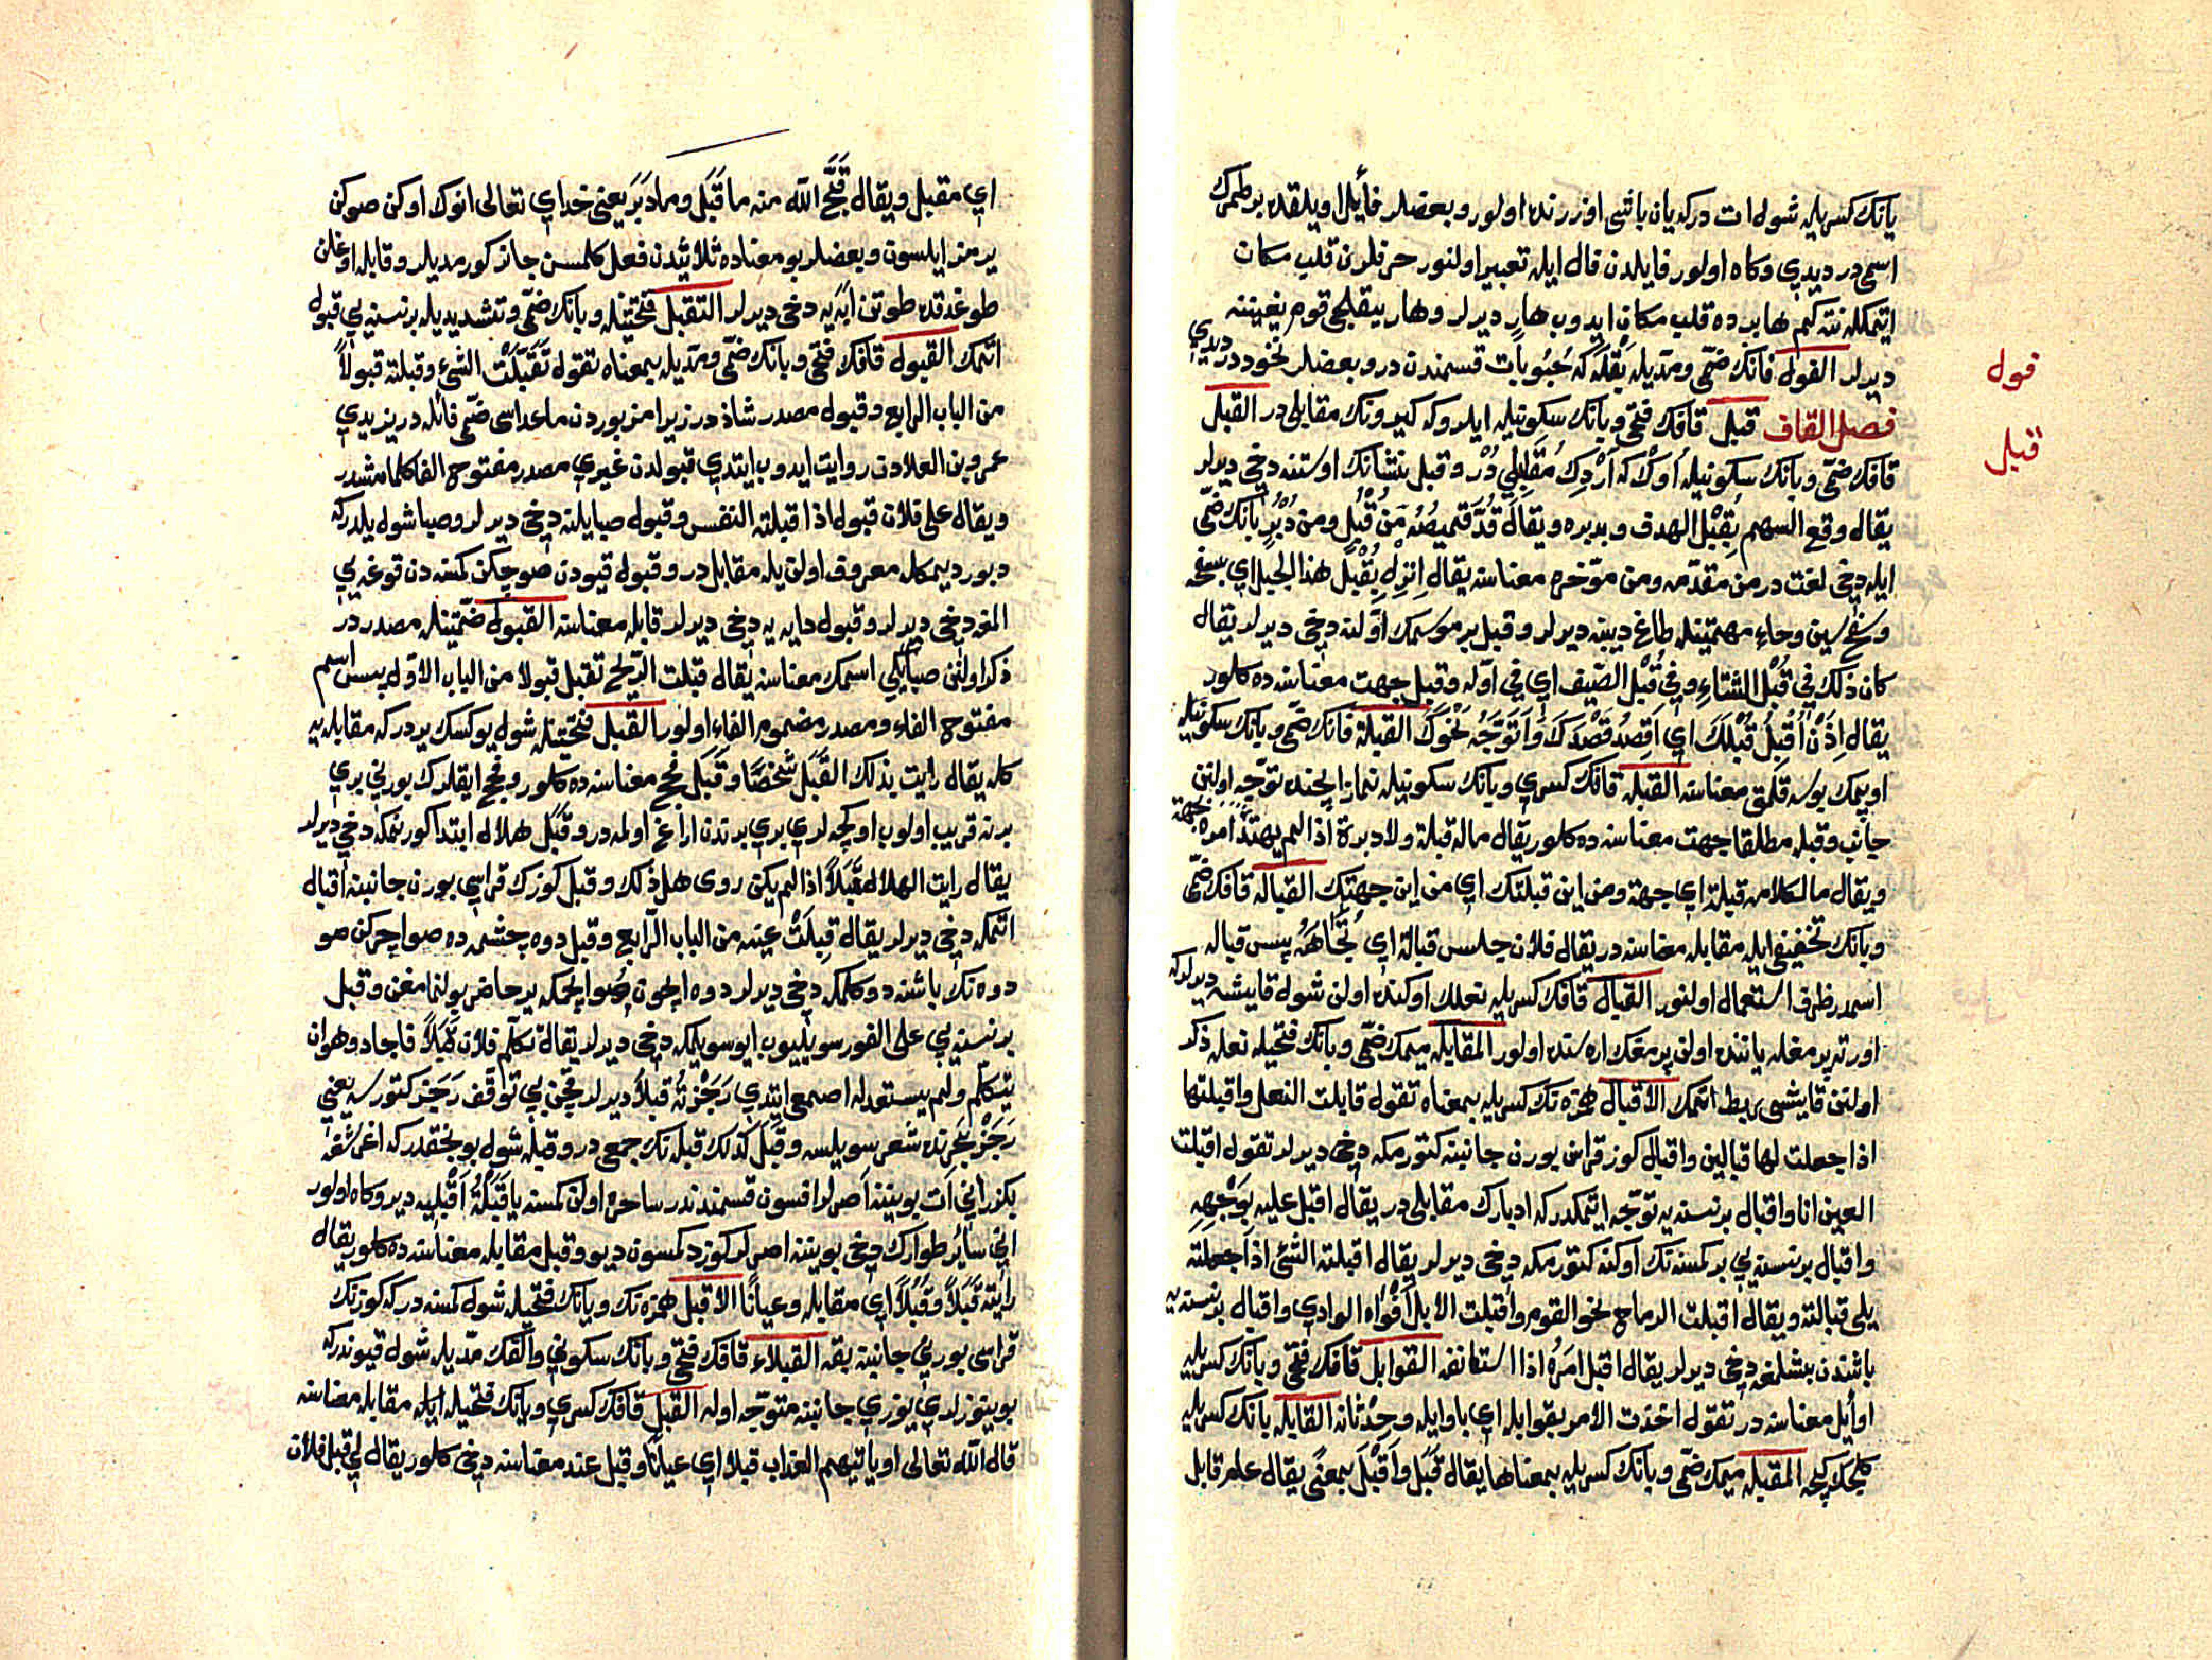 يانك كسريله شول ات دركه يان باشى اوزرنده اولور وبعضلر فأيل اويلقده بر طمرك
اسمى در ديدى وكاه اولور فايلدن فال ايله تعبير اولنور حرفلرن قلب مكان
اتمكله نته كيم هايرده قلب مكان ايدوب هار ديرلر وهار ييقلجى قوم يغيننه
ديرلر الفول فانك ضمى ومديله بقله كه حبوبات قسمندن در وبعضلر نخوددر ديدى
فول
فصل القاف قبل قافك فتحى وبانك سكونيله ايلرو كه كيرونك مقابلى در القبل
قبل
قافك ضمى وبانك سكونيله اوك كه اردك مقابلى در وقبل بنشانك اوستنه دخى ديرلر
يقال وقع السهم بقبل الهدف وبدبره ويقال قد قميصه من قبل ومن دبر بانك ضمى
ايله دخى لغت در من مقدمه ومن مؤخره معناسنه يقال انزل بقبل هذا الجبل اى بسفحه
وسفح سين وحاء مهملتينله طاغ ديبنه ديرلر وقبل بر موسمك اولنه دخى ديرلر يقال
كان ذلك فى قبل الشتاء وفى قبل الصيف اى فى اوله وقبل جهت معناسنه ده كلور
يقال اذن اقبل قبلك اى اقصد قصدك واتوجه نحوك القبلة قافك ضمى وبانك سكونيله
اوپمك بوسه قلمق معناسنه القبله قافك كسرى وبانك سكونيله نماز ايچنده توجه اولنن
جانب وقبله مطلقا جهت معناسنه ده كلور يقال ماله قبلة ولا دبرة اذا لم يهتد امره جهة
ويقال ما لكلامه قبلة اى جهة ومن اين قبلتك اى من اين جهتك القبالة قافك ضمى
وبانك تخفيفى ايله مقابله معناسنه در يقال فلان جلس قبالة اى تجاهه پس قباله
اسمدر ظرف استعمال اولنور القبال قافك كسريله نعلك اوكنده اولن شول قايشه ديرلر كه
اورته پرمغله ياننده اولن پرمغك اره سنده اولور المقابله ميمك ضمى وبانك فتحيله نعله ذكر
اولنن قايشى ربط اتمك الاقبال همزه نك كسريله بمعناه تقول قابلت النعل واقبلتها
اذا جعلت لها قبالين واقبال كوز قراسن بورن جانبنه كتورمكه دخى ديرلر تقول اقبلت
العين انا واقبال بر نسنه يه توجه اتمكدر كه ادبارك مقابلى در يقال اقبل عليه بوجهه
واقبال بر نسنه يى بر كمسنه نك اوكنه كتورمكه دخى ديرلر يقال اقبلته الشئ اذا جعلته
يلى قبالته ويقال اقبلت الرماح نحو القوم واقبلت الابل افواه الوادى واقبال بر نسنه يه
باشندن بشلمغه دخى ديرلر يقال اقبل امره اذا استانفه القوابل قافك فتحى وبانك كسريله
اوائل معناسنه در تقول اخذت الامر بقوابله اى باوايله وحدثانه القابله بانك كسريله
كلجك كيجه المقبله ميمك ضمى وبانك كسريله بمعناها يقال قبل واقبل بمعنى يقال عام قابل
اى مقبل ويقال قبح الله منه ما قبل وما دبر يعنى خداى تعالى انوك اوكن صوكن
يرمز ايلسون وبعضلر بو معناده ثلاثيدن فعل كلمسن جائز كورمديلر وقابله اوغلن
طوغدقده طوتن ابه يه دخى ديرلر التقبل فتحتينله وبانك ضمى وتشديديله بر نسنه يى قبول
اتمك القبول قافك فتحى وبانك ضمى ومديله بمعناه تقول تقبلت الشئ وقبلته قبولا
من الباب الرابع وقبول مصدر شاذ در زيرا مزبوردن ماعداسى ضمى فائله در يزيدى
عمرو بن العلادن روايت ايدوب ايتدى قبولدن غيرى مصدر مفتوح الفا كلمامشدر
ويقال على فلان قبول اذا قبلته النفس وقبول صبا يلنه دخى ديرلر وصبا شول يلدركه
دبور ديمكله معروف اولن يله مقابل در وقبول قيودن صو چكن كمسه دن قوغه يى
النه دخى ديرلر وقبول دايه يه دخى ديرلر قابله معناسنه القبول ضمتينله مصدر در
ذكر اولنن صبا يلى اسمك معناسنه يقال قبلت الريح تقبل قبولا من الباب الاول پس اسم
مفتوح الفاء ومصدر مضموم الفاء اولور القبل فتحتينله شول يوكسك يردر كه مقابله يه
كله يقال رايت بذلك القبل شخصا وقبل فحج معناسنه ده كلور وفحج ايقلرك بورنى يرى
برنه قريب اولوب اوكچه لرى يرى برندن اراغ اولمه در وقبل هلال ابتدا كورنمكه دخى ديرلر
يقال رايت الهلال قبلا اذا لم يكن روى قبل ذلك وقبل كوزك قراسى بورن جانبنه اقبال
اتمكه دخى ديرلر يقال قبلت عينه من الباب الرابع وقبل دوه چشمه ده صو ايچركن صو
دوه نك باشنه دوكلمكه دخى ديرلر دوه ايچون صو ايچمكه ير حاضر بولنمامغن وقبل
بر نسنه يى على الفور سويليوب ايو سويلمكه دخى ديرلر يقال تكلم فلان قبلا فاجاد وهو ان
يتكلم ولم يستعد له اصمعى ايتدى رجزته قبلا ديرلر قچن بى توقف رجز كتورسه يعنى
رجز بحرنده شعر سويلسه وقبل كذلك قبله نك جمعى در وقبله شول بونجقدر كه اغرشغه
بكزر انى ات بوينينه اصرلر افسون قسمندندر ساحره اولن كمسنه يا قبلة اقبليه دير وكاه اولور
انى سائر طوارك دخى بوينينه اصرلر كوز دكمسون ديو وقبل مقابله معناسنه ده كلور يقال
رايته قبلا وقبلا اى مقابله وعيانا الاقبل همزه نك وبانك فتحيله شول كمسنه دركه كوزنك
قراسى بورنى جانبنه بقه القبلاء قافك فتحى وبانك سكونى والفك مديله شول قيوندر كه
بوينوزلرى يوزى جانبنه متوجه اوله القبل قافك كسرى وبانك فتحيله ايله مقابله معناسنه
قال الله تعالى او ياتيهم العذاب قبلا اى عيانا وقبل عند معناسنه دخى كلور يقال لى قبل فلان